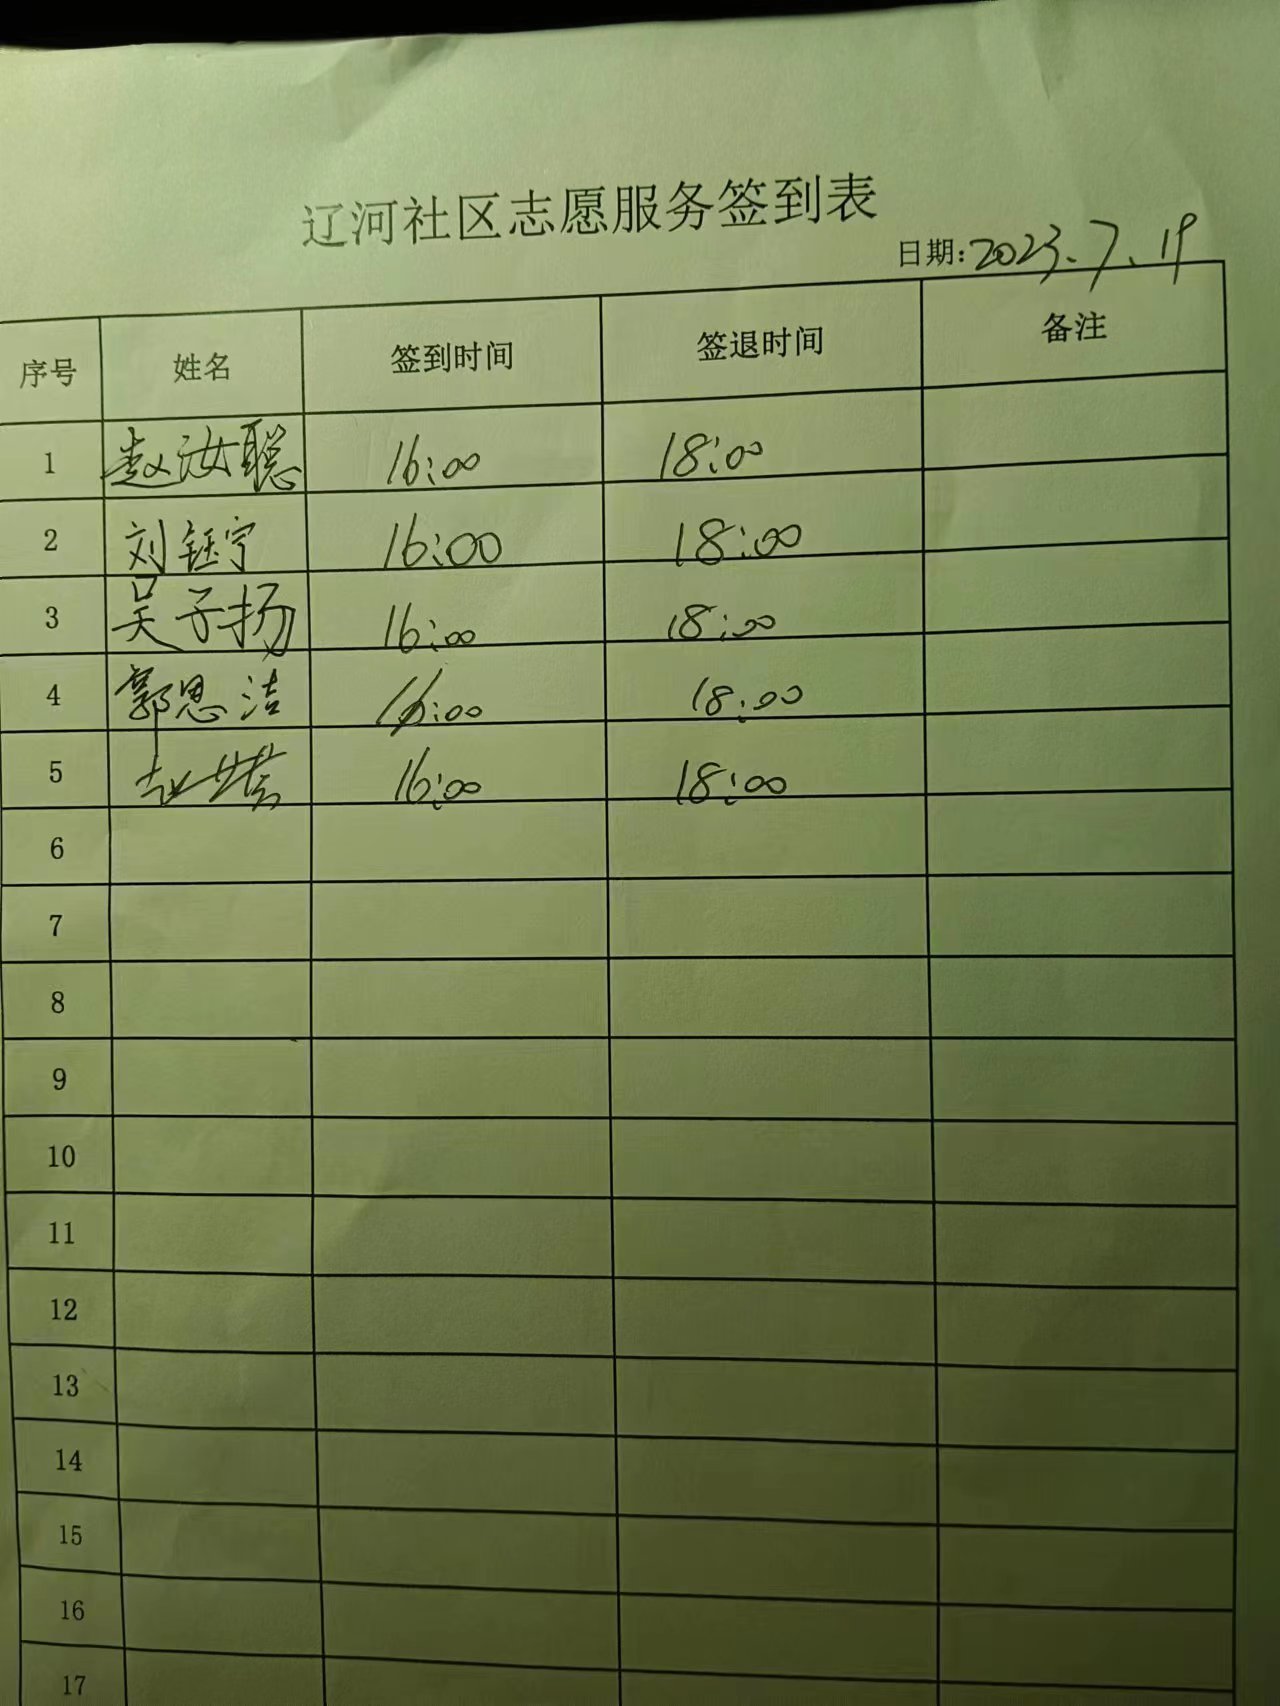 辽河社区志愿服务签到表
日期: 2023.7.19
序号 姓名 签到时间 签退时间 备注
1 赵汝聪 16:00 18:00
2 刘钰宁 16:00 18:00
3 吴子扬 16:00 18:00
4 郭思洁 16:00 18:00
5 赵 16:00 18:00
6
7
8
9
10
11
12
13
14
15
16
17